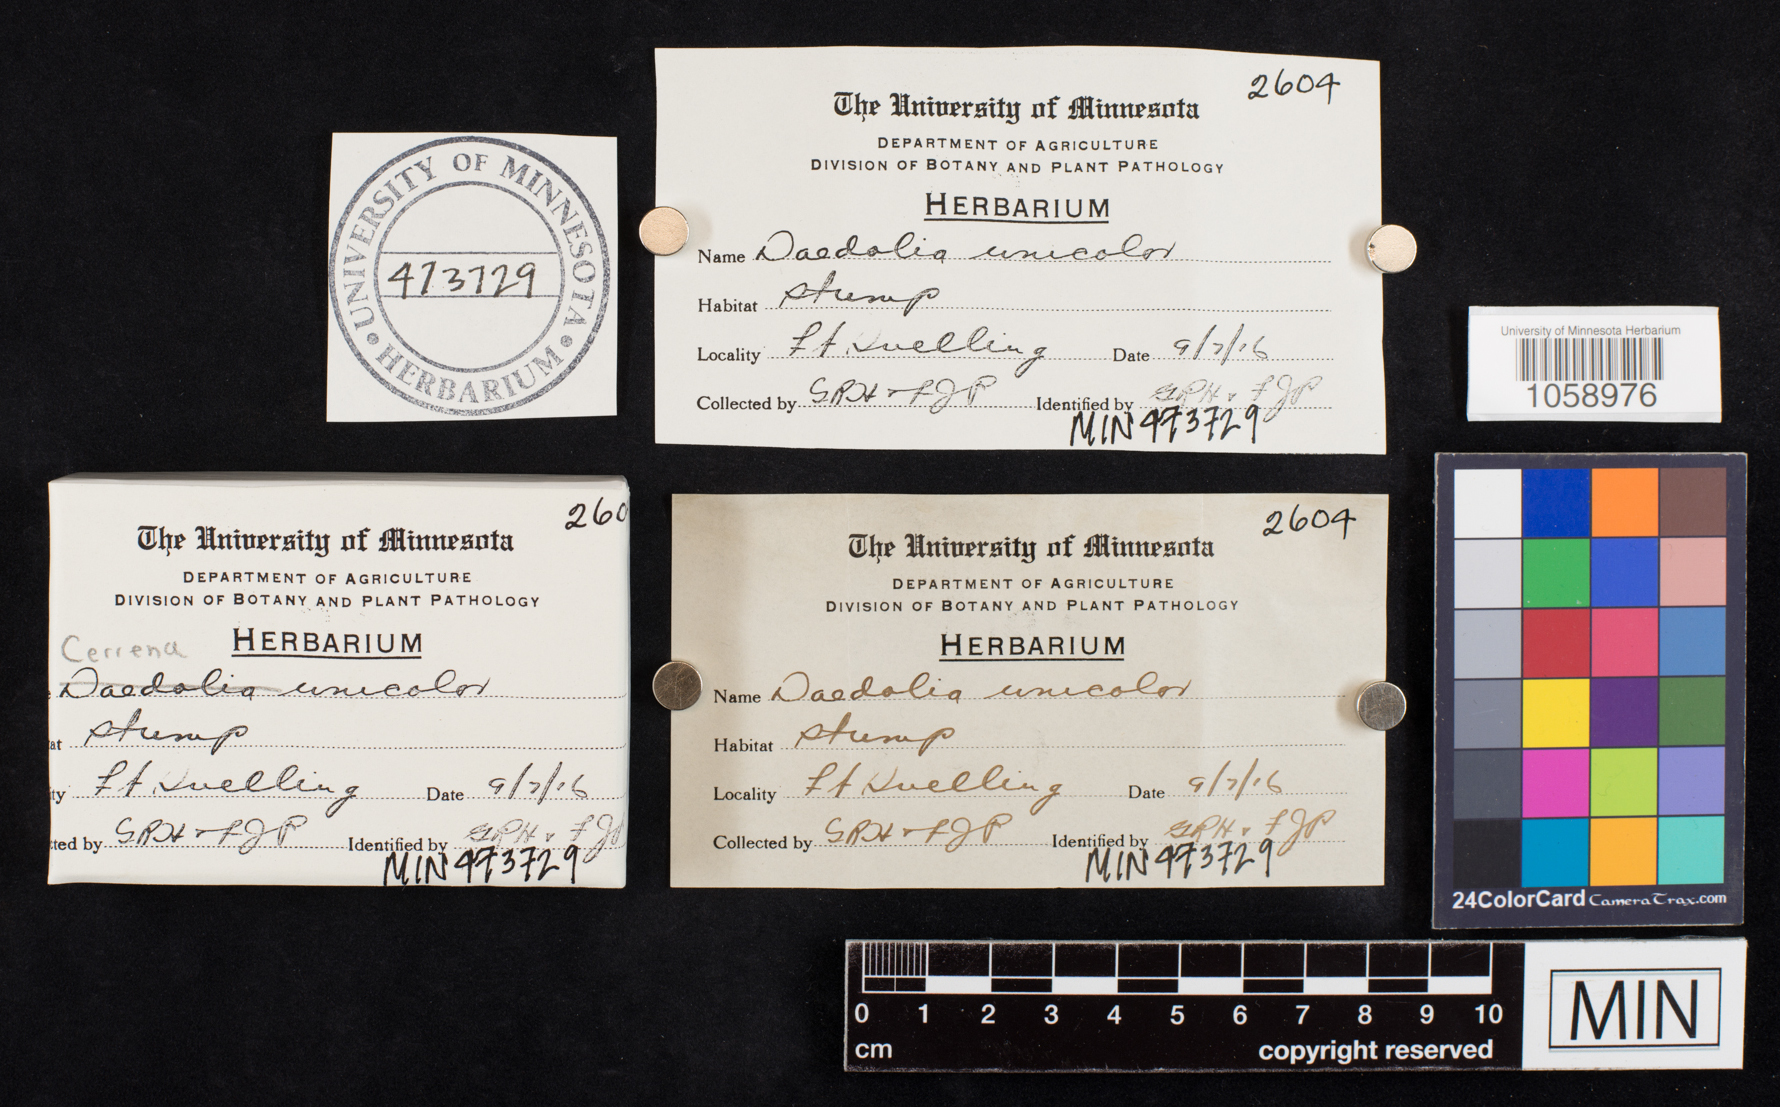 UNIVERSITY OF MINNESOTA
473729
HERBARIUM
2604
The University of Minnesota
DEPARTMENT OF AGRICULTURE
DIVISION OF BOTANY AND PLANT PATHOLOGY
HERBARIUM
Name Daedalia unicolor
Habitat stump
Locality Ft Snelling Date 9/7/16
Collected by GRH & FJP Identified by GRH & FJP
MIN 473729
University of Minnesota Herbarium
1058976
260
The University of Minnesota
DEPARTMENT OF AGRICULTURE
DIVISION OF BOTANY AND PLANT PATHOLOGY
HERBARIUM
Cerrena
Daedalia unicolor
at stump
ty Ft Snelling Date 9/7/16
ted by GRH & FJP Identified by GRH & FJP
MIN 473729
2604
The University of Minnesota
DEPARTMENT OF AGRICULTURE
DIVISION OF BOTANY AND PLANT PATHOLOGY
HERBARIUM
Name Daedalia unicolor
Habitat stump
Locality Ft Snelling Date 9/7/16
Collected by GRH & FJP Identified by GRH & FJP
MIN 473729
24ColorCard CameraTrax.com
0 1 2 3 4 5 6 7 8 9 10
cm copyright reserved
MIN